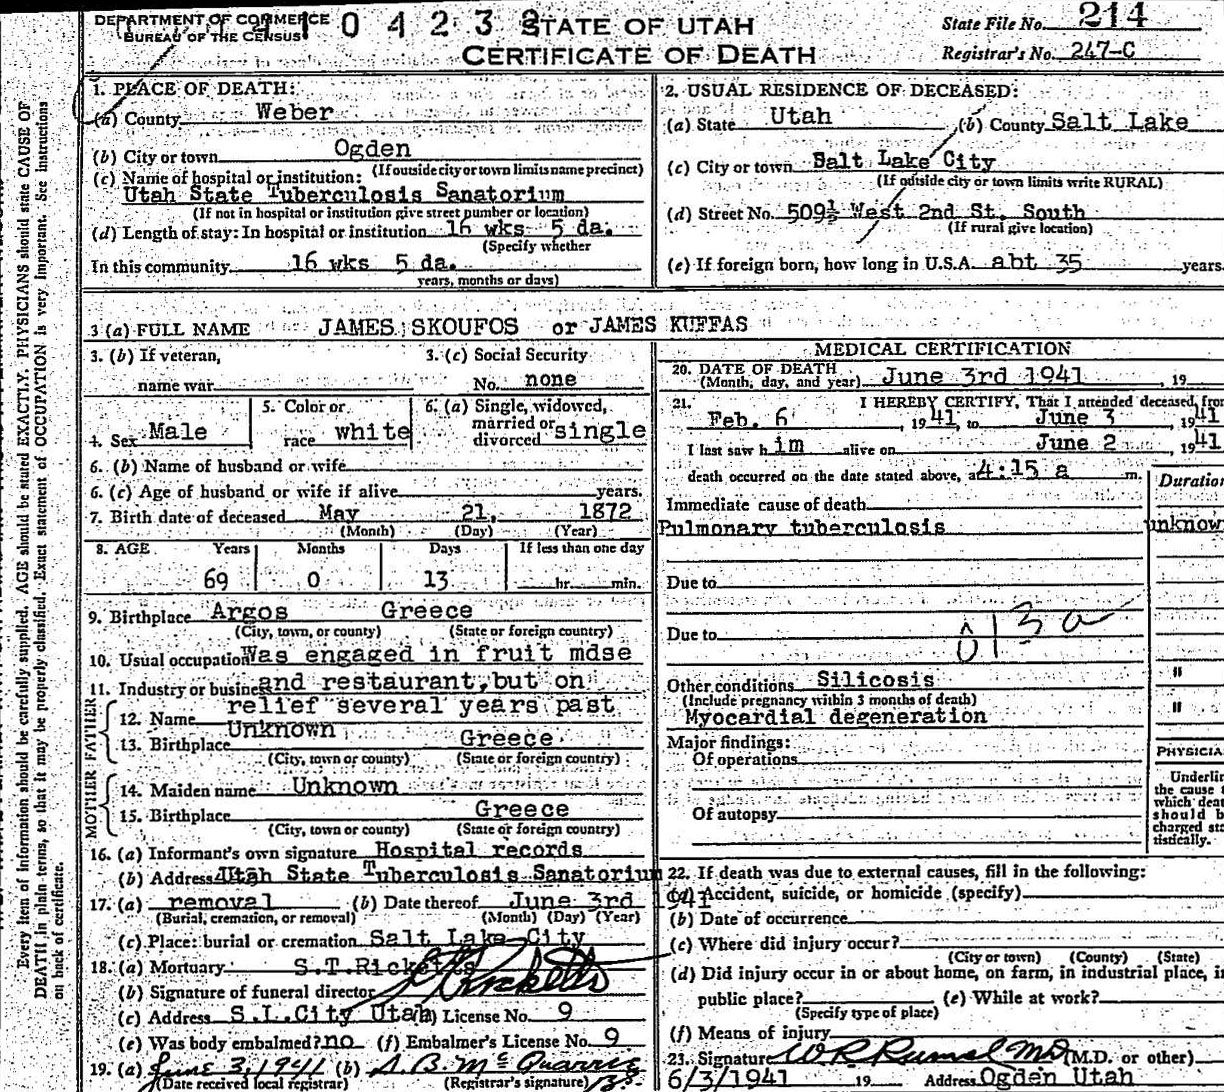 DEPARTMENT OF COMMERCE
BUREAU OF THE CENSUS
0 4 2 3
STATE OF UTAH
CERTIFICATE OF DEATH
State File No. 214
Registrar's No. 247-C
1. PLACE OF DEATH:
(a) County Weber
(b) City or town Ogden
(If outside city or town limits name precinct)
(c) Name of hospital or institution:
Utah State Tuberculosis Sanatorium
(If not in hospital or institution give street number or location)
(d) Length of stay: In hospital or institution 16 wks 5 da.
(Specify whether
In this community 16 wks 5 da.
years, months or days)
2. USUAL RESIDENCE OF DECEASED:
(a) State Utah (b) County Salt Lake
(c) City or town Salt Lake City
(If outside city or town limits write RURAL)
(d) Street No. 509½ West 2nd St. South
(If rural give location)
(e) If foreign born, how long in U.S.A. abt 35 years.
3 (a) FULL NAME JAMES SKOUFOS or JAMES KUFFAS
3. (b) If veteran,
name war
3. (c) Social Security
No. none
4. Sex Male
5. Color or
race white
6. (a) Single, widowed,
married or
divorced single
6. (b) Name of husband or wife
6. (c) Age of husband or wife if alive years.
7. Birth date of deceased May 21, 1872
(Month) (Day) (Year)
8. AGE Years Months Days If less than one day
69 0 13 hr. min.
9. Birthplace Argos Greece
(City, town, or county) (State or foreign country)
10. Usual occupation Was engaged in fruit mdse
11. Industry or business and restaurant, but on
relief several years past
FATHER
12. Name Unknown
13. Birthplace Greece
(City, town or county) (State or foreign country)
MOTHER
14. Maiden name Unknown
15. Birthplace Greece
(City, town or county) (State or foreign country)
16. (a) Informant's own signature Hospital records
(b) Address Utah State Tuberculosis Sanatorium
17. (a) removal (b) Date thereof June 3rd 1941
(Burial, cremation, or removal) (Month) (Day) (Year)
(c) Place: burial or cremation Salt Lake City
18. (a) Mortuary S.T. Ricketts
(b) Signature of funeral director Ricketts
(c) Address S.L. City Utah (d) License No. 9
(e) Was body embalmed? no (f) Embalmer's License No. 9
19. (a) June 3, 1941 (b) A. B. McQuarrie
(Date received local registrar) (Registrar's signature)
MEDICAL CERTIFICATION
20. DATE OF DEATH
(Month, day, and year) June 3rd 1941, 19
21. I HEREBY CERTIFY, That I attended deceased from
Feb. 6, 1941, to June 3, 1941
I last saw him alive on June 2, 1941
death occurred on the date stated above, at 4:15 a m.
Duration
Immediate cause of death
Pulmonary tuberculosis unknown
Due to
Due to
013a
Other conditions Silicosis "
(Include pregnancy within 3 months of death)
Myocardial degeneration "
Major findings:
Of operations
Of autopsy
PHYSICIA
Underlin
the cause t
which deat
should b
charged sta
tistically.
22. If death was due to external causes, fill in the following:
(a) Accident, suicide, or homicide (specify)
(b) Date of occurrence
(c) Where did injury occur?
(City or town) (County) (State)
(d) Did injury occur in or about home, on farm, in industrial place, in
public place? (e) While at work?
(Specify type of place)
(f) Means of injury
23. Signature W R Rumel MD (M.D. or other)
6/3/1941 19 Address Ogden Utah
Every item of information should be carefully supplied. AGE should be stated EXACTLY. PHYSICIANS should state CAUSE OF
DEATH in plain terms, so that it may be properly classified. Exact statement of OCCUPATION is very important. See instructions
on back of certificate.